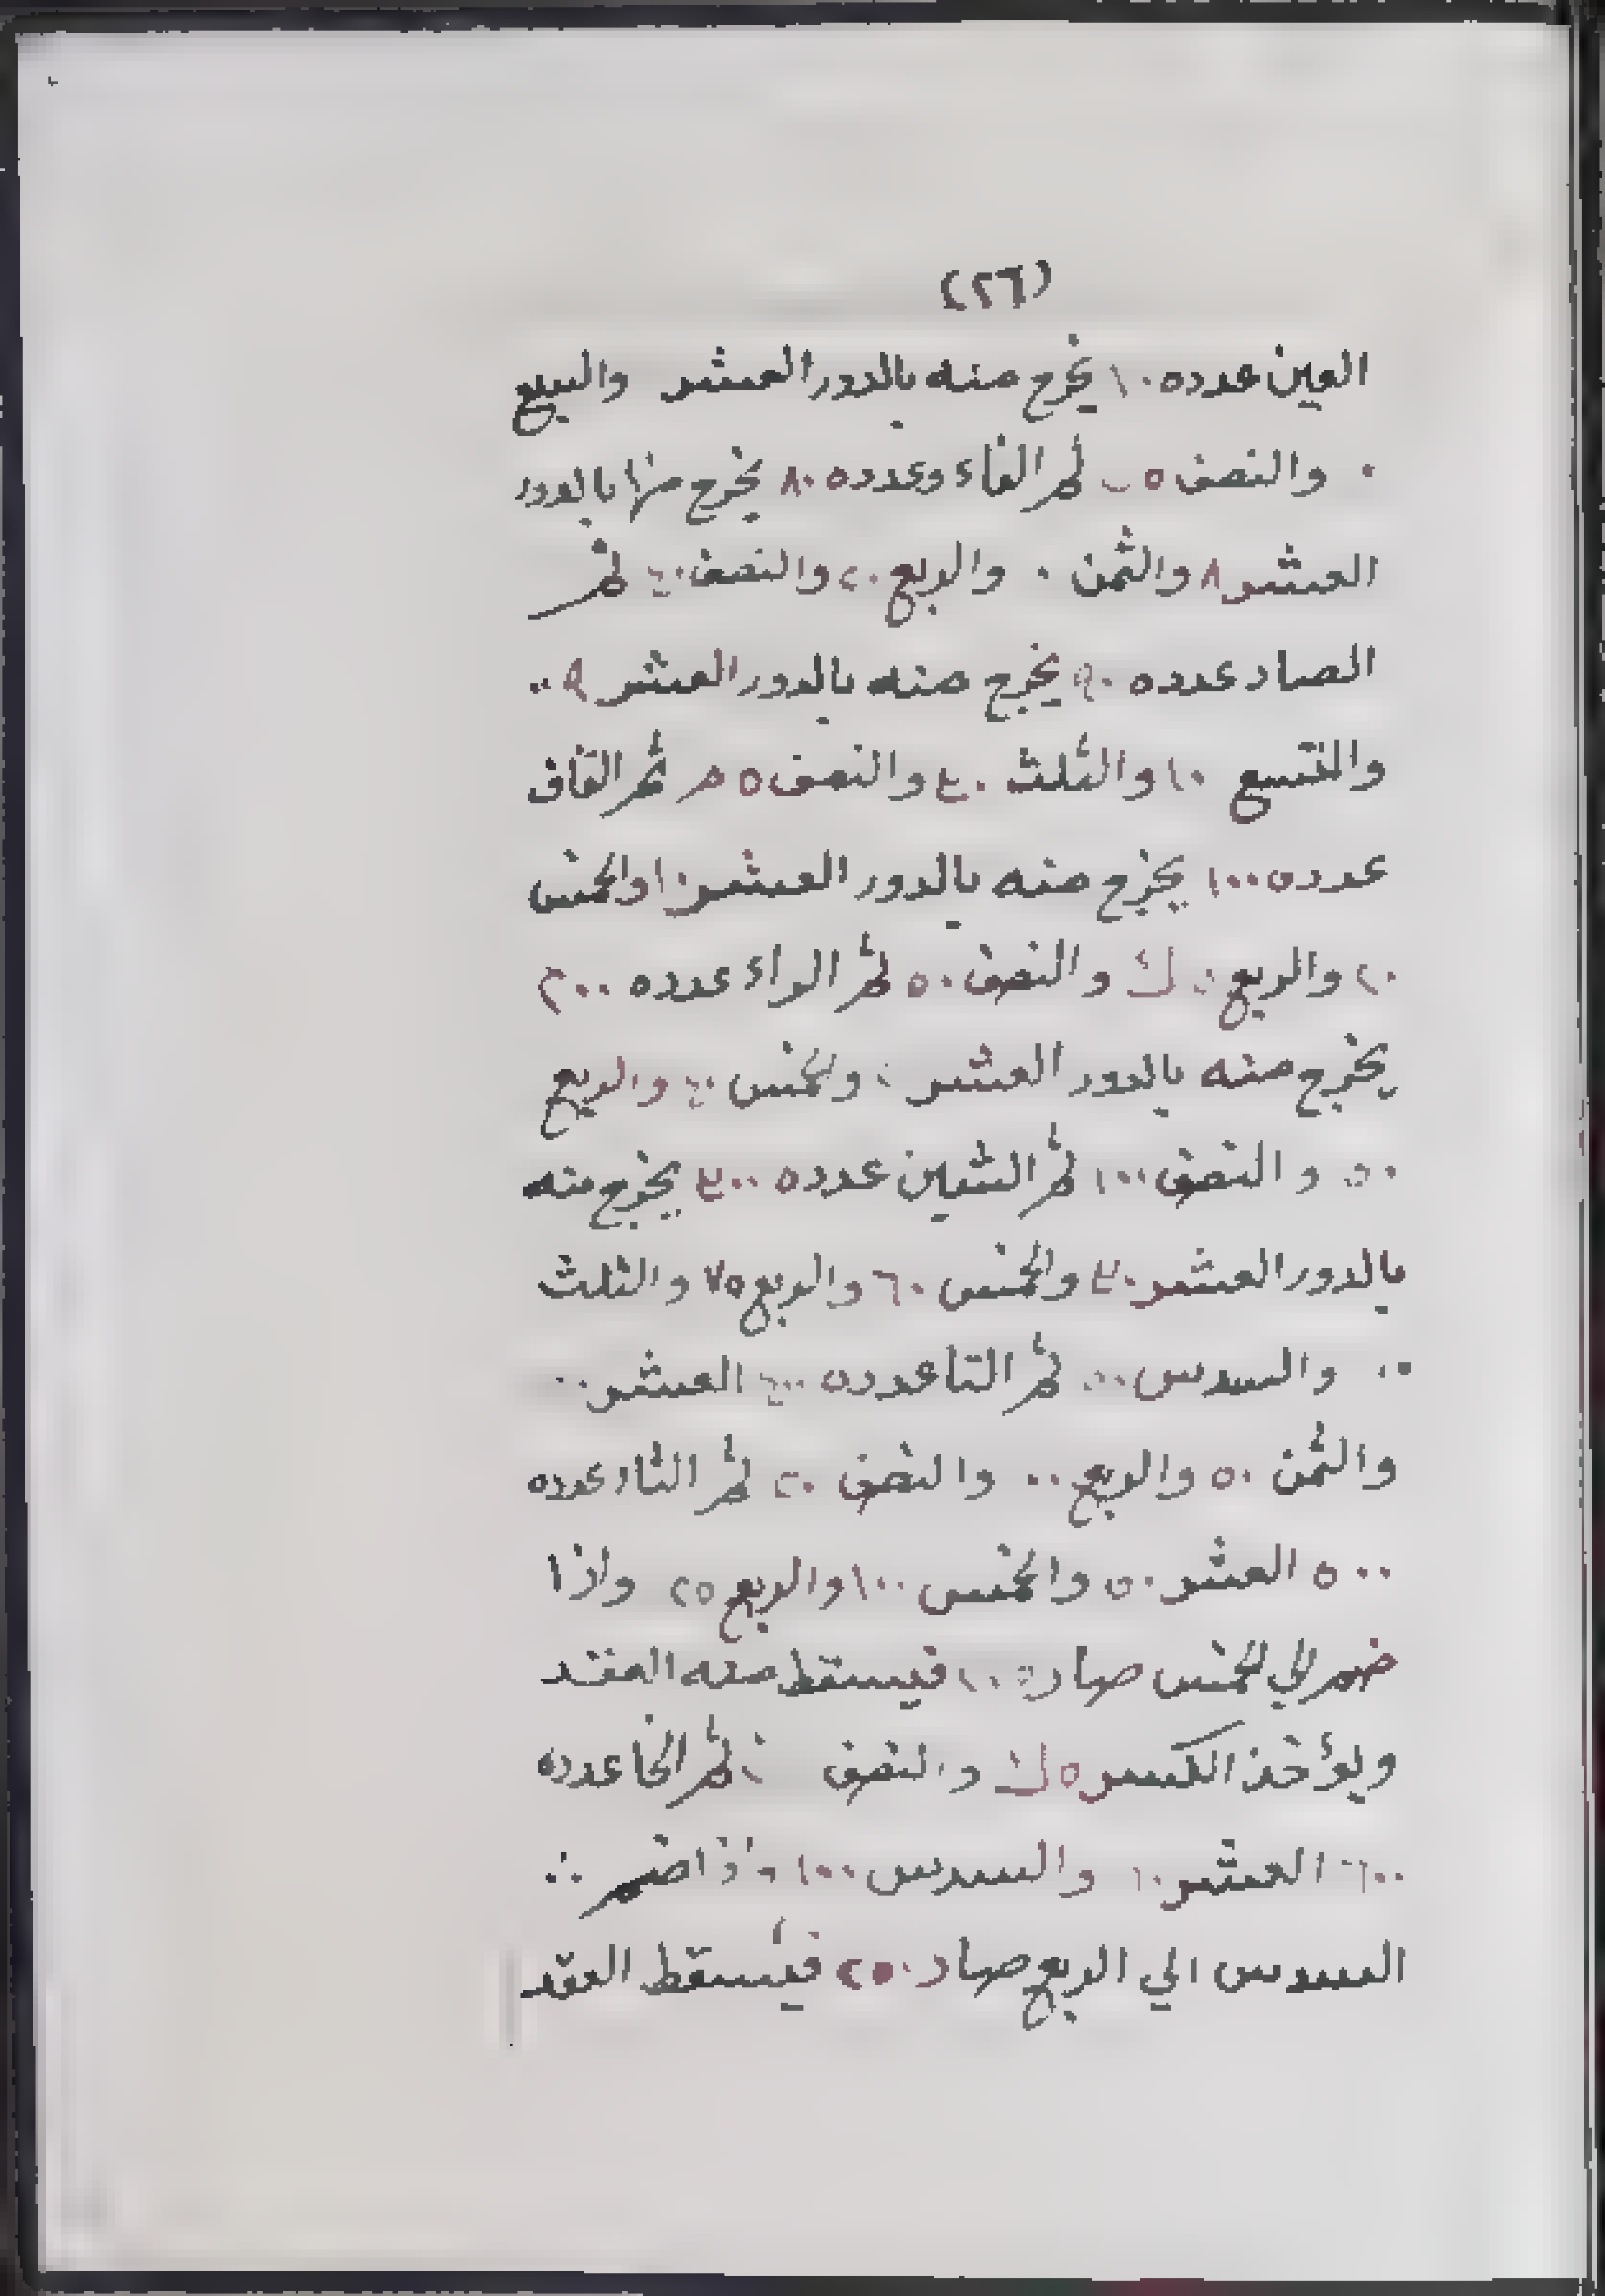 (٢٦)
العين عدده ١٠ يخرج منه بالدور العشر والسبع
٠ والنصف ٥ ثم الفاء وعدده ٨٠ يخرج منها بالدور
العشر ٨ والثمن ٠ والربع ٢٠ والنصف ٤٠ ثم
الصاد عدده ٩٠ يخرج منه بالدور العشر ٩
والتسع ١٠ والثلث ٣٠ والنصف ثم القاف
عدده ١٠٠ يخرج منه بالدور العشر ١٠ والخمس
٢٠ والربع والنصف ٥٠ ثم الراء عدده ٢٠٠
يخرج منه بالدور العشر والخمس ٤٠ والربع
٥٠ والنصف ١٠٠ ثم الشين عدده ٣٠٠ يخرج منه
بالدور العشر ٣٠ والخمس ٦٠ والربع ٧٥ والثلث
والسدس ثم التا عدده ٤٠٠ العشر
والثمن ٥٠ والربع والنصف ثم الثاء عدده
٥٠٠ العشر ٥٠ والخمس ١٠٠ والربع ٢٥ واذا
ضم الي الخمس صار فيسقط منه العقد
ويؤخذ الكسر والنصف ثم الخا عدده
٦٠٠ العشر ٦٠ والسدس ١٠٠ واذا ضم
السدس الي الربع صار ٢٥٠ فيسقط العقد